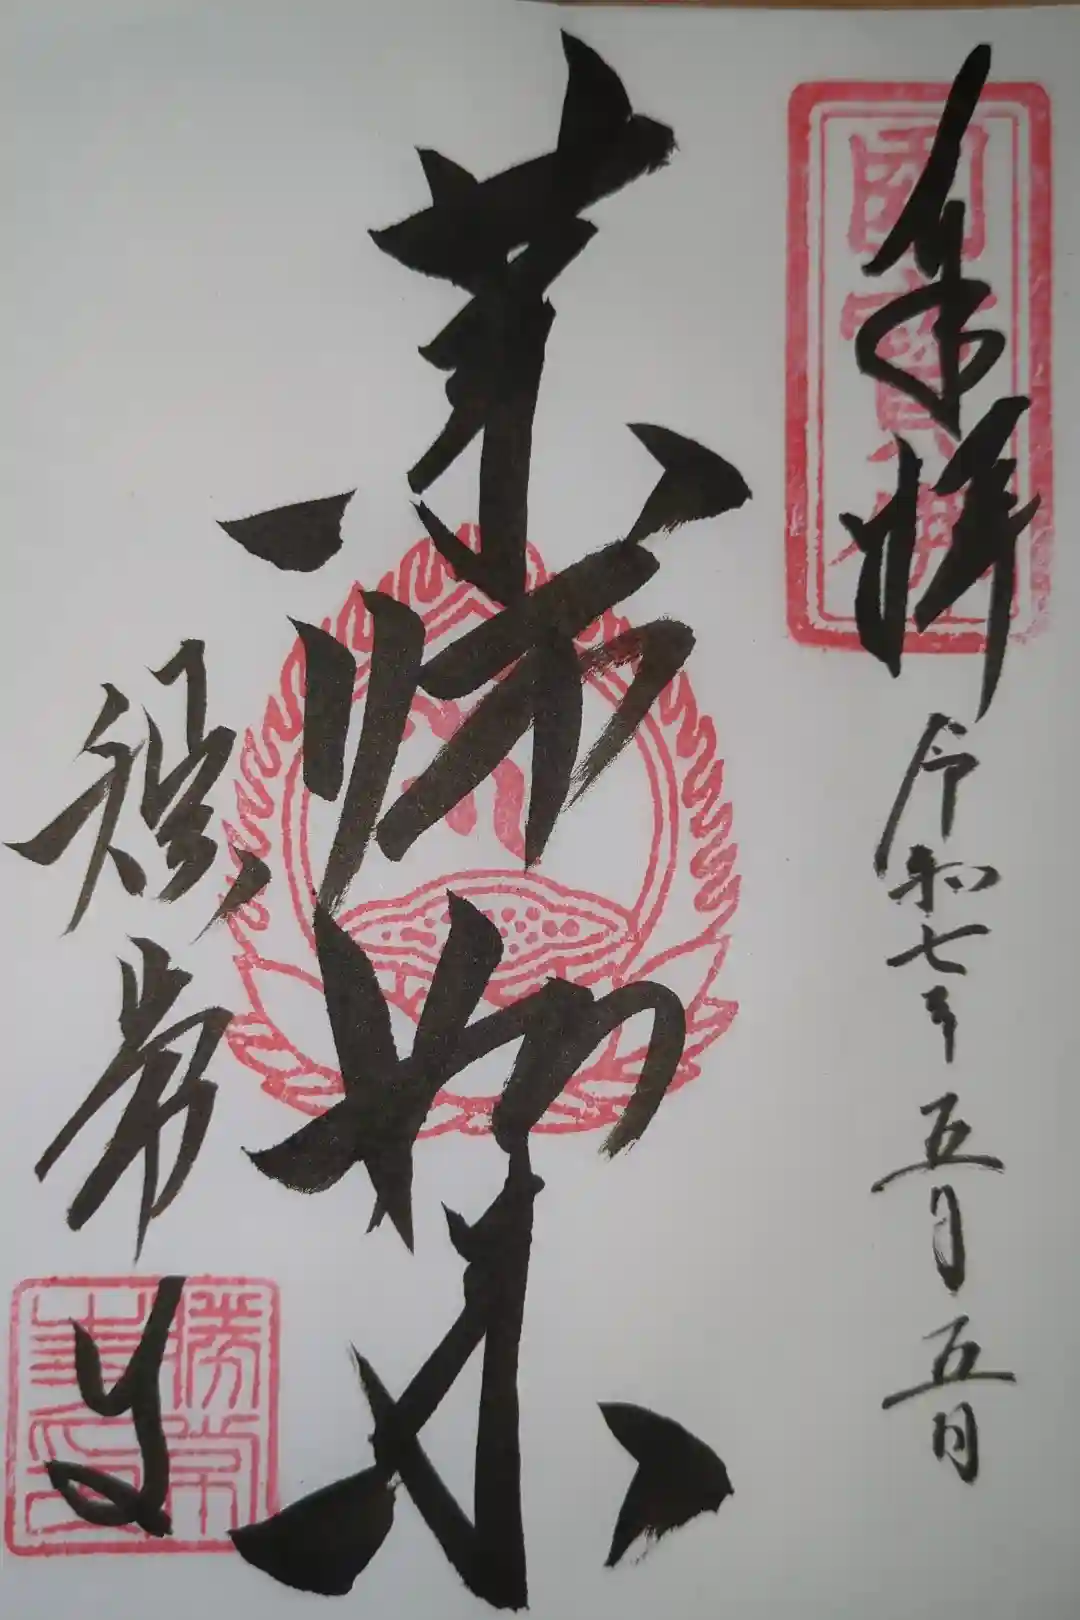 奉拝
令和七年五月五日
國寶
薬師如来
勝常寺
勝常寺印